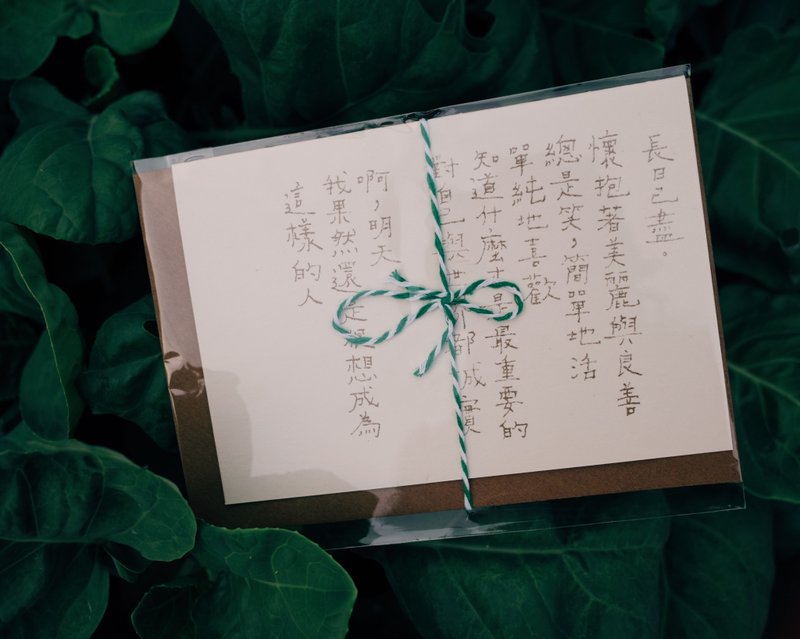 長日已盡。
懷抱著美麗與良善
總是笑，簡單地活
單純地喜歡
知道什麼才是最重要的
對自己與世都誠實
啊，明天
我果然還是很想成為
這樣的人